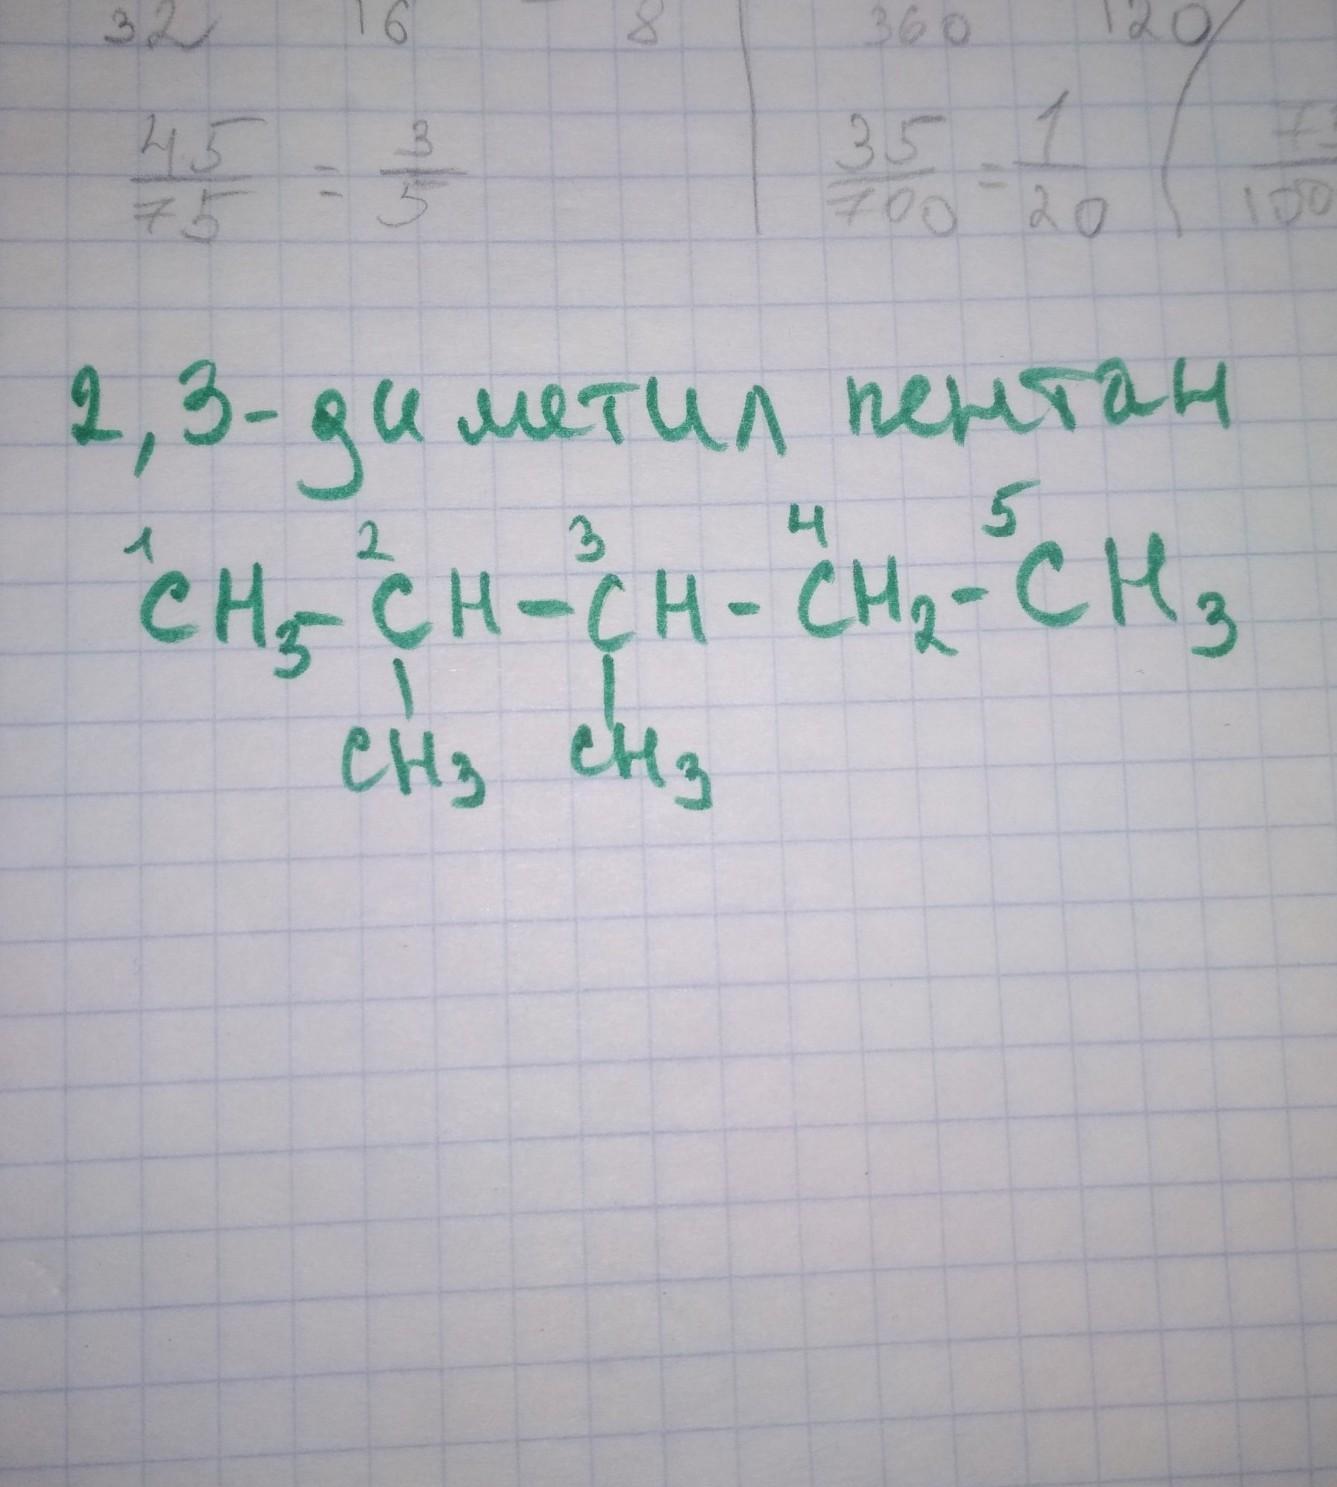 32 16 8 360 120
45/75 = 3/5 35/700 = 1/20
2,3-диметил пентан
1 2 3 4 5
CH3-CH-CH-CH2-CH3
CH3 CH3